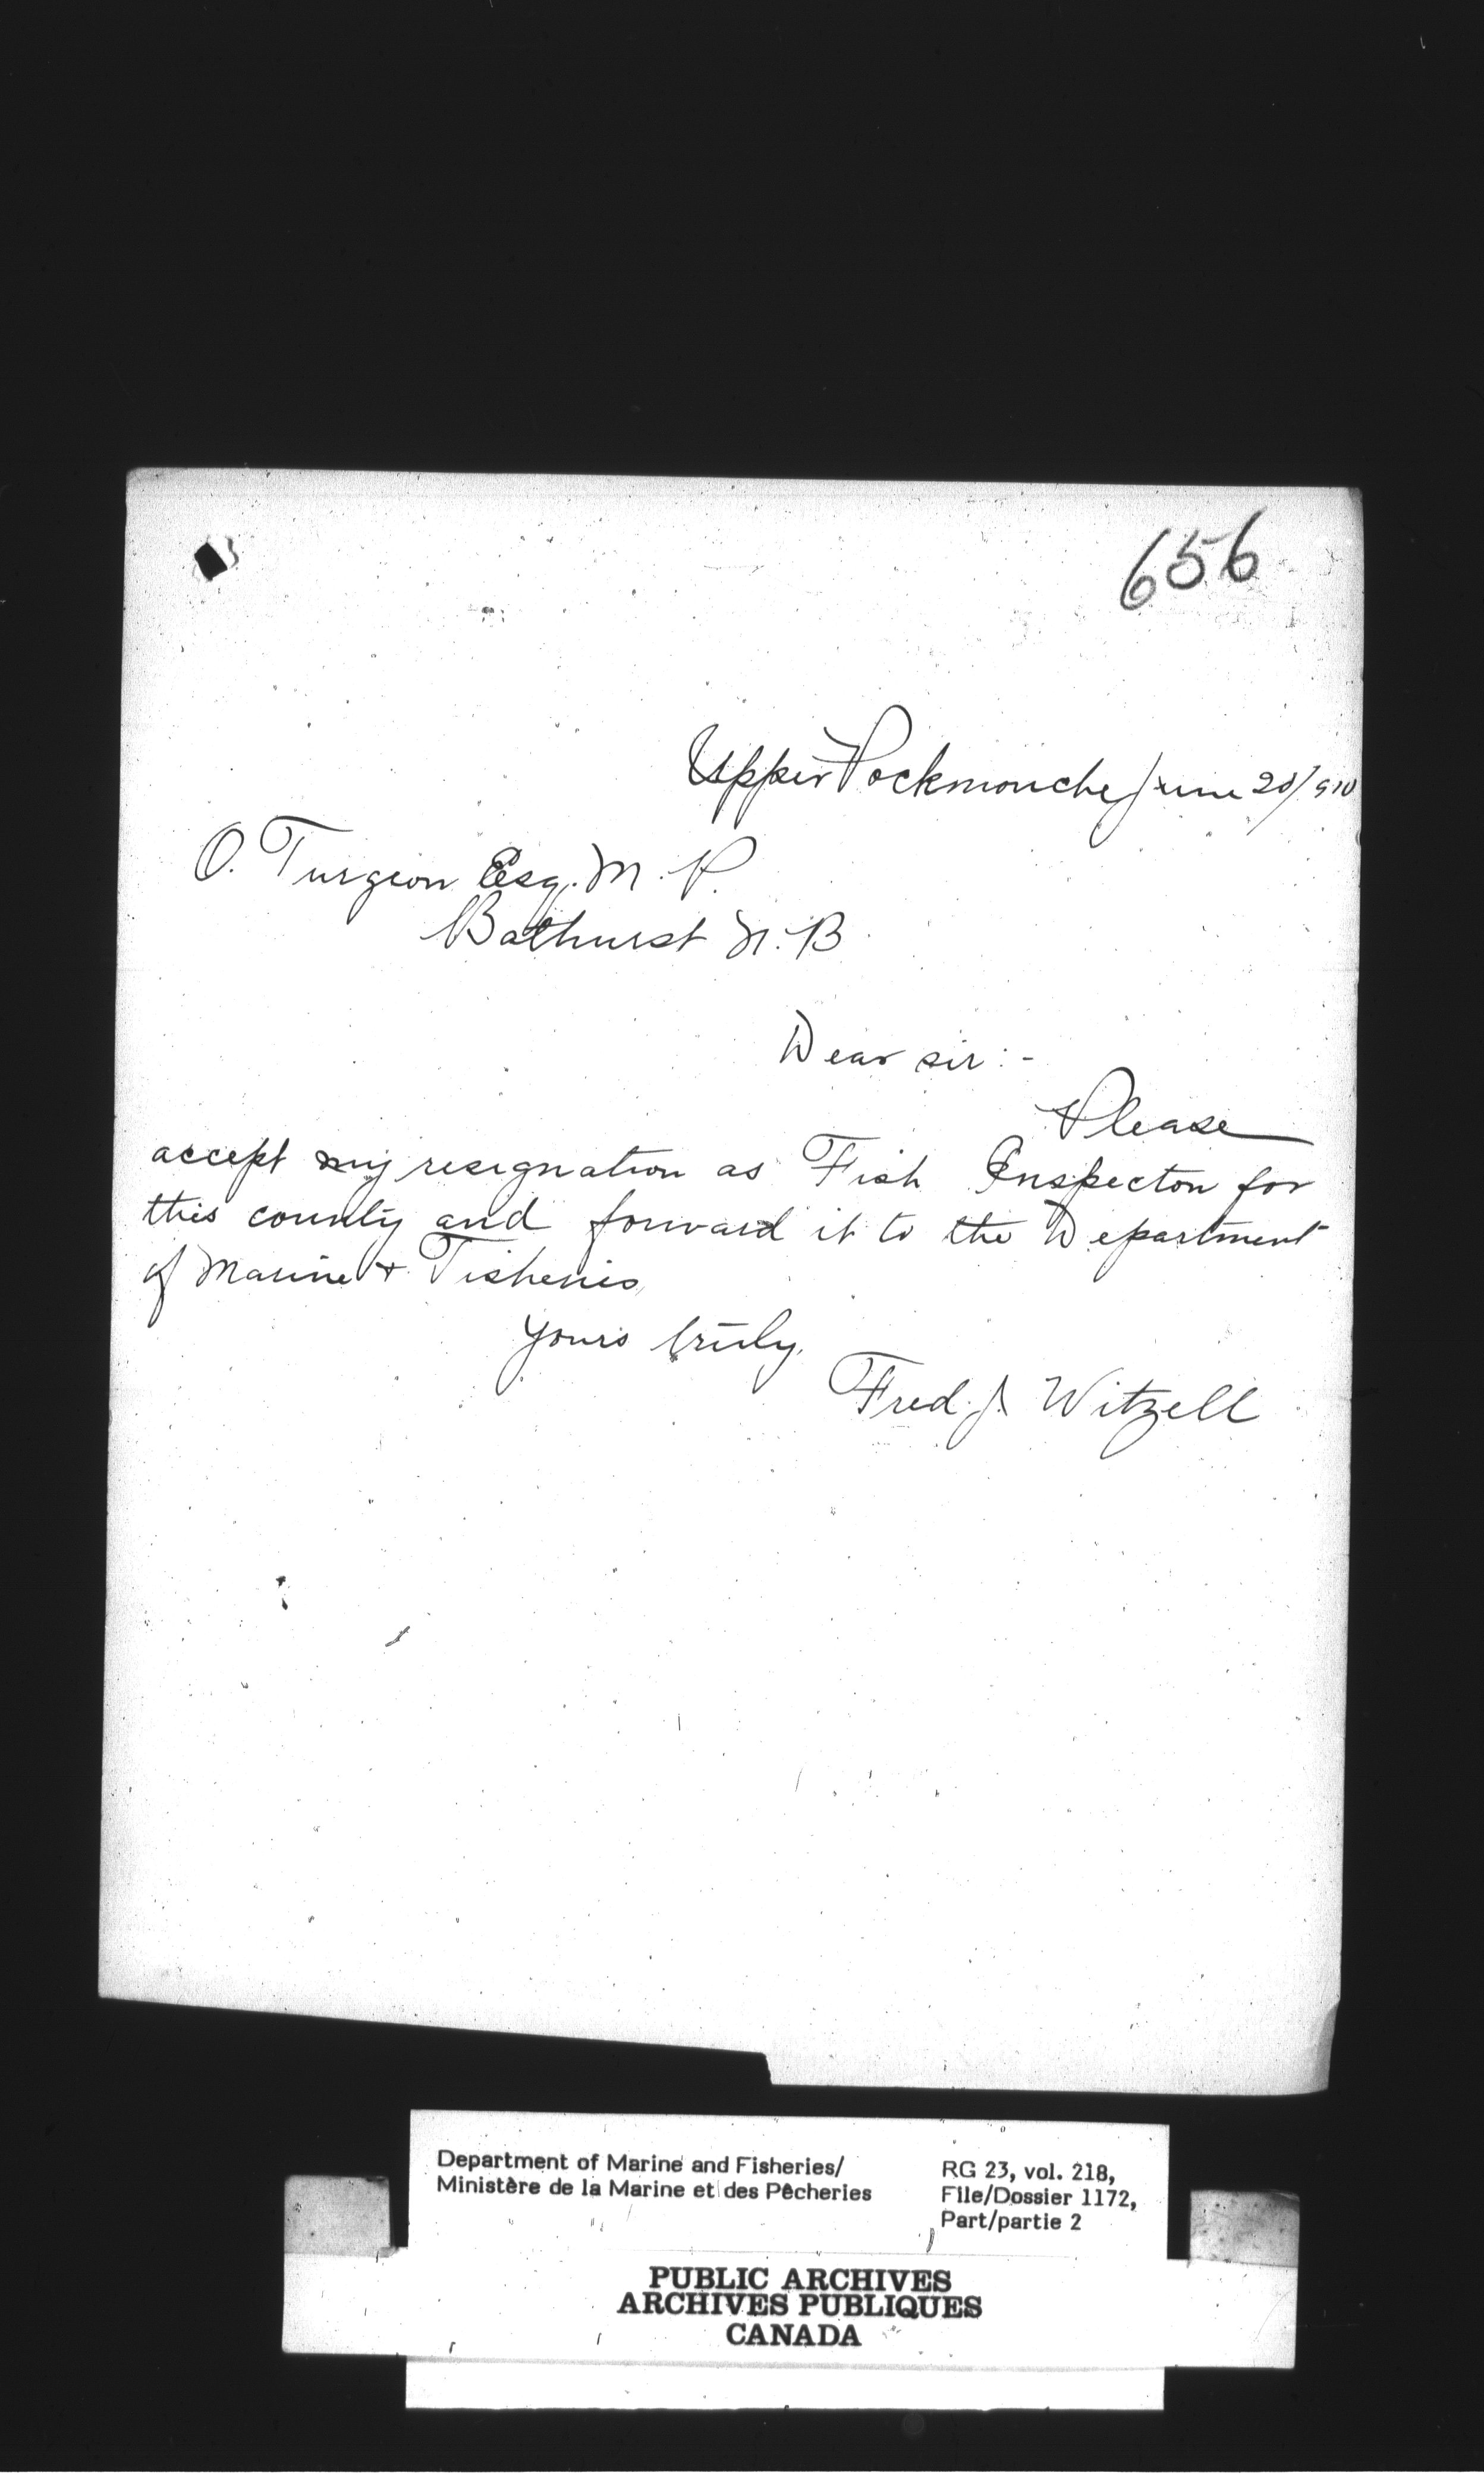 656
Upper Pockmouche June 20/910
O. Turgeon Esq. M. P.
Bathurst N. B
Dear sir :-
Please
accept my resignation as Fish Inspector for
this county and forward it to the Department
of Marine & Fisheries
Yours truly,
Fred. J. Witzell
Department of Marine and Fisheries/
Ministère de la Marine et des Pêcheries
RG 23, vol. 218,
File/Dossier 1172,
Part/partie 2
PUBLIC ARCHIVES
ARCHIVES PUBLIQUES
CANADA